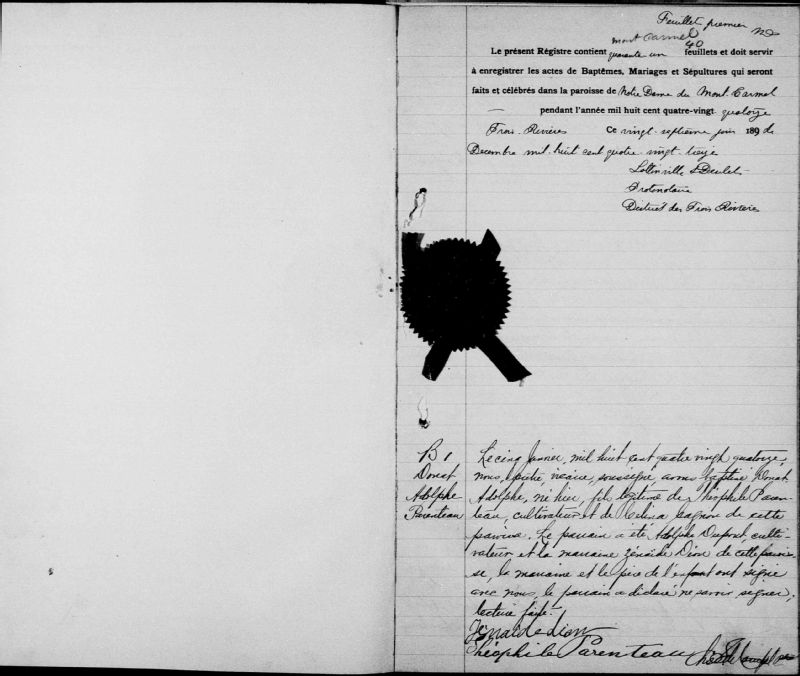 Feuillet premier
Mont Carmel
40
Le présent Régistre contient quarante un feuillets et doit servir
à enregistrer les actes de Baptêmes, Mariages et Sépultures qui seront
faits et célébrés dans la paroisse de Notre Dame du Mont Carmel
pendant l'année mil huit cent quatre-vingt quatorze
Trois-Rivières Ce vingt-septième jour 189 de
Decembre mil huit cent quatre vingt treize
Lottinville &
Protonotaire
District des Trois Rivières
B 1
Donat
Adolphe
Parenteau
Le cinq Janvier, mil huit cent quatre vingt quatorze,
nous, prêtre, vicaire, soussigné, avons baptisé Donat
Adolphe, né hier, fils légitime de Théophile Paren-
teau, cultivateur et de Celina Gagnon de cette
paroisse. Le parrain a été Adolphe Dupont, culti-
vateur et la marraine Zénaïde Dion de cette parois-
se, la marraine et le père de l'enfant ont signé
avec nous, le parrain a déclaré ne savoir signer,
lecture faite.
Zénaide Dion
Théophile Parenteau